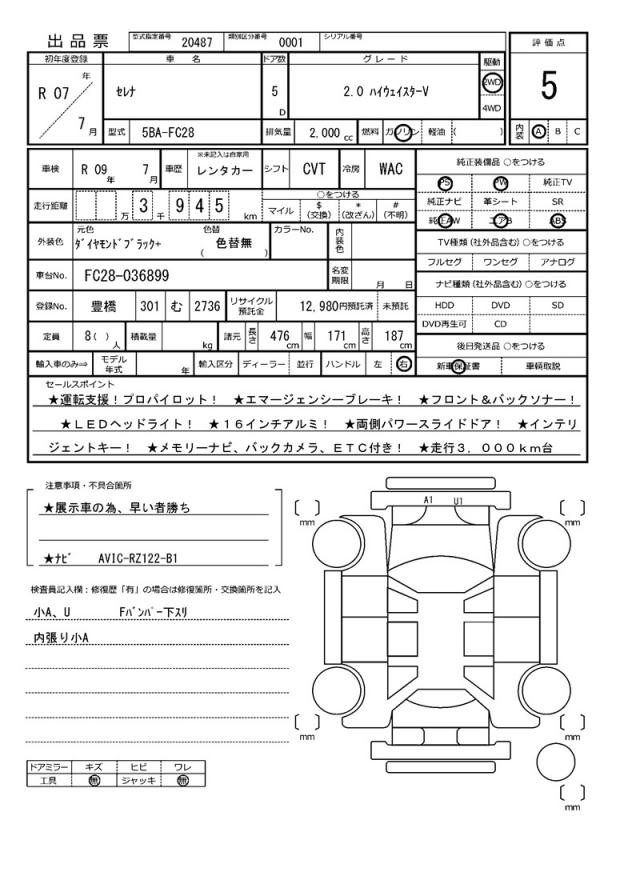 出品票 型式指定番号 20487 類別区分番号 0001 シリアル番号
評価点
初年度登録 車名 ドア数 グレード 駆動
R 07 年 7 月 セレナ 5 D 2.0 ハイウェイスターV 2WD 4WD
5
型式 5BA-FC28 排気量 2,000 cc 燃料 ガソリン 軽油 ( ) 内装 A B C
車検 R 09 年 7 月 車歴 ※未記入は自家用 レンタカー シフト CVT 冷房 WAC
純正装備品 ○をつける
PS PW 純正TV
純正ナビ 革シート SR
純正AW エアB ABS
走行距離 万 3 千 9 4 5 km ○をつける マイル $(交換) *(改ざん) #(不明)
外装色 元色 ダイヤモンドブラック+ 色替 ( 色替無 ) カラーNo. 内装色
TV種類(社外品含む)○をつける
フルセグ ワンセグ アナログ
車台No. FC28-036899 名変期限 月 日
ナビ種類(社外品含む)○をつける
登録No. 豊橋 301 む 2736 リサイクル預託金 12,980円預託済 未預託
HDD DVD SD
DVD再生可 CD
定員 8( )人 積載量 kg 諸元 長さ 476 cm 幅 171 cm 高さ 187 cm
後日発送品 ○をつける
輸入車のみ⇒ モデル年式 年 輸入区分 ディーラー 並行 ハンドル 左 右
新車保証書 車輌取説
セールスポイント
★運転支援!プロパイロット! ★エマージェンシーブレーキ! ★フロント&バックソナー!
★LEDヘッドライト! ★16インチアルミ! ★両側パワースライドドア! ★インテリ
ジェントキー! ★メモリーナビ、バックカメラ、ETC付き! ★走行3.000km台
注意事項・不具合箇所
★展示車の為、早い者勝ち
★ナビ AVIC-RZ122-B1
検査員記入欄:修復歴「有」の場合は修復箇所・交換箇所を記入
小A、U Fバンパー下スリ
内張り小A
ドアミラー キズ ヒビ ワレ
工具 無 ジャッキ 無
A1 U1
[ ] mm
[ ] mm
[ ] mm
[ ] mm
[ ] mm